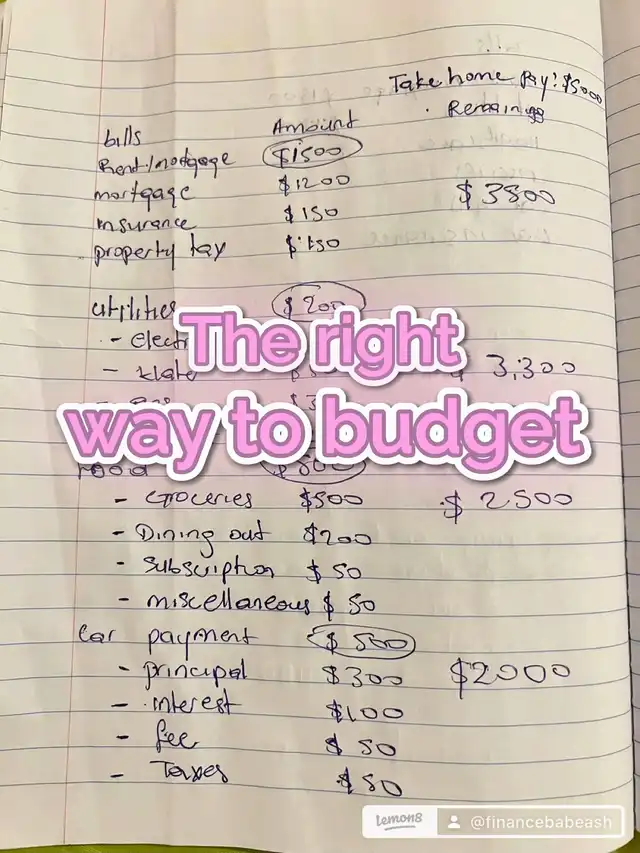 Take home Pay: $5000
Remaining
bills Amount
Rent/mortgage $1500
mortgage $1200 $3800
insurance $150
property tax $150
utilities $200
- Electri
- $ 3,300
The right
way to budget
food $800
- Groceries $500 $2500
- Dining out $200
- Subscription $50
- miscellaneous $50
Car payment $500
- principal $300 $2000
- interest $100
- fee $50
- Taxes $50
lemon8 @financebabeash